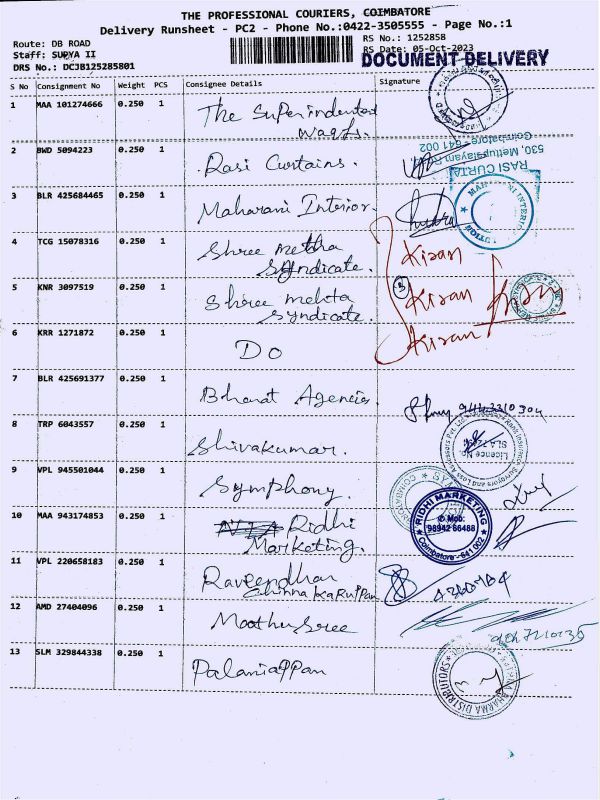 THE PROFESSIONAL COURIERS, COIMBATORE
Delivery Runsheet - PC2 - Phone No.:0422-3505555 - Page No.:1
Route: DB ROAD
RS No.: 125285B
Staff: SURYA II
RS Date: 05-Oct-2023
DRS No.: DCJB125285801
DOCUMENT DELIVERY
S No Consignment No Weight PCS Consignee Details Signature
1 MAA 101274666 0.250 1 The Superindented
wages.
2 BWD 5094223 0.250 1 Rasi Curtains.
RASI CURTAI
530, Mettupalayam Rd
Coimbatore - 641 002
3 BLR 425684465 0.250 1 Maharani Interior.
4 TCG 15078316 0.250 1 Shree metha Kiran
Syndicate.
5 KNR 3097519 0.250 1 Shree mehta Kiran
Syndicate.
6 KRR 1271872 0.250 1 Do Kiran
7 BLR 425691377 0.250 1 Bharat Agencies.
8 TRP 6043557 0.250 1 Shivakumar.
Licence No.
9 VPL 945501044 0.250 1 Symphony.
10 MAA 943174853 0.250 1 Ridhi
Marketing.
RIDHI MARKETING
Mob:
98942 66488
Coimbatore - 641 001
11 VPL 220658183 0.250 1 Raveendhan
Chinna Karuppan
12 AMD 27404096 0.250 1 Moothu Sree
13 SLM 329844338 0.250 1 Palaniappan
PHARMA DISTRIBUTORS